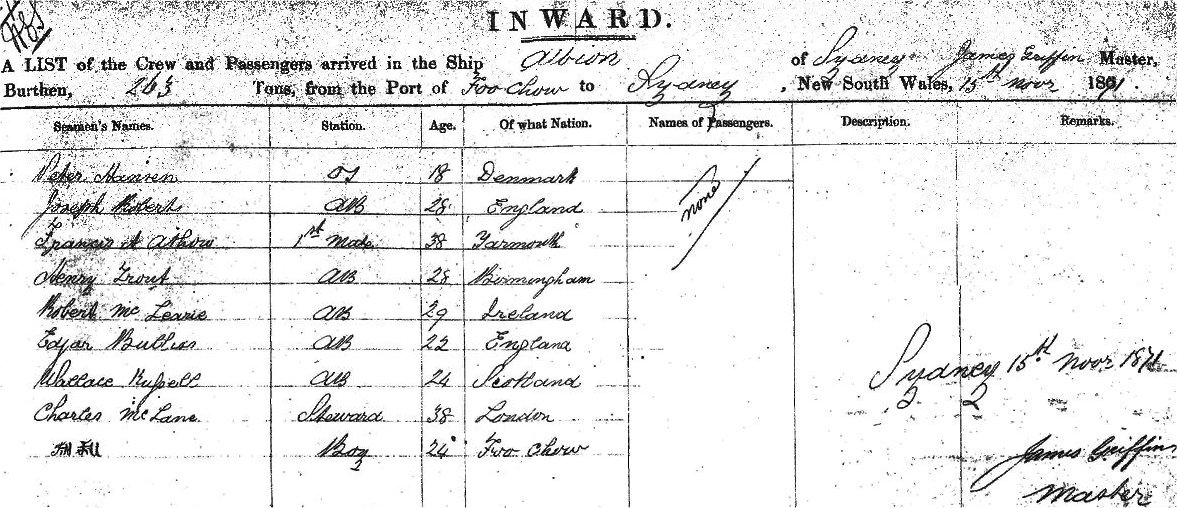 INWARD.
A LIST of the Crew and Passengers arrived in the Ship Albion of Sydney James Griffin Master,
Burthen, 263 Tons, from the Port of Foo Chow to Sydney, New South Wales, 15th Novr 1871
Seamen's Names. Station. Age. Of what Nation. Names of Passengers. Description. Remarks.
Peter Hansen OS 18 Denmark
Joseph Roberts AB 28 England none
Francis A Athow 1st Mate 38 Yarmouth
Henry Trout AB 28 Birmingham
Robert McLearie AB 29 Ireland
Edgar AB 22 England
Wallace Russell AB 24 Scotland
Sydney 15th Novr 1871
Charles McLane Steward 38 London
Boy 24 Foo Chow
James Griffin
Master